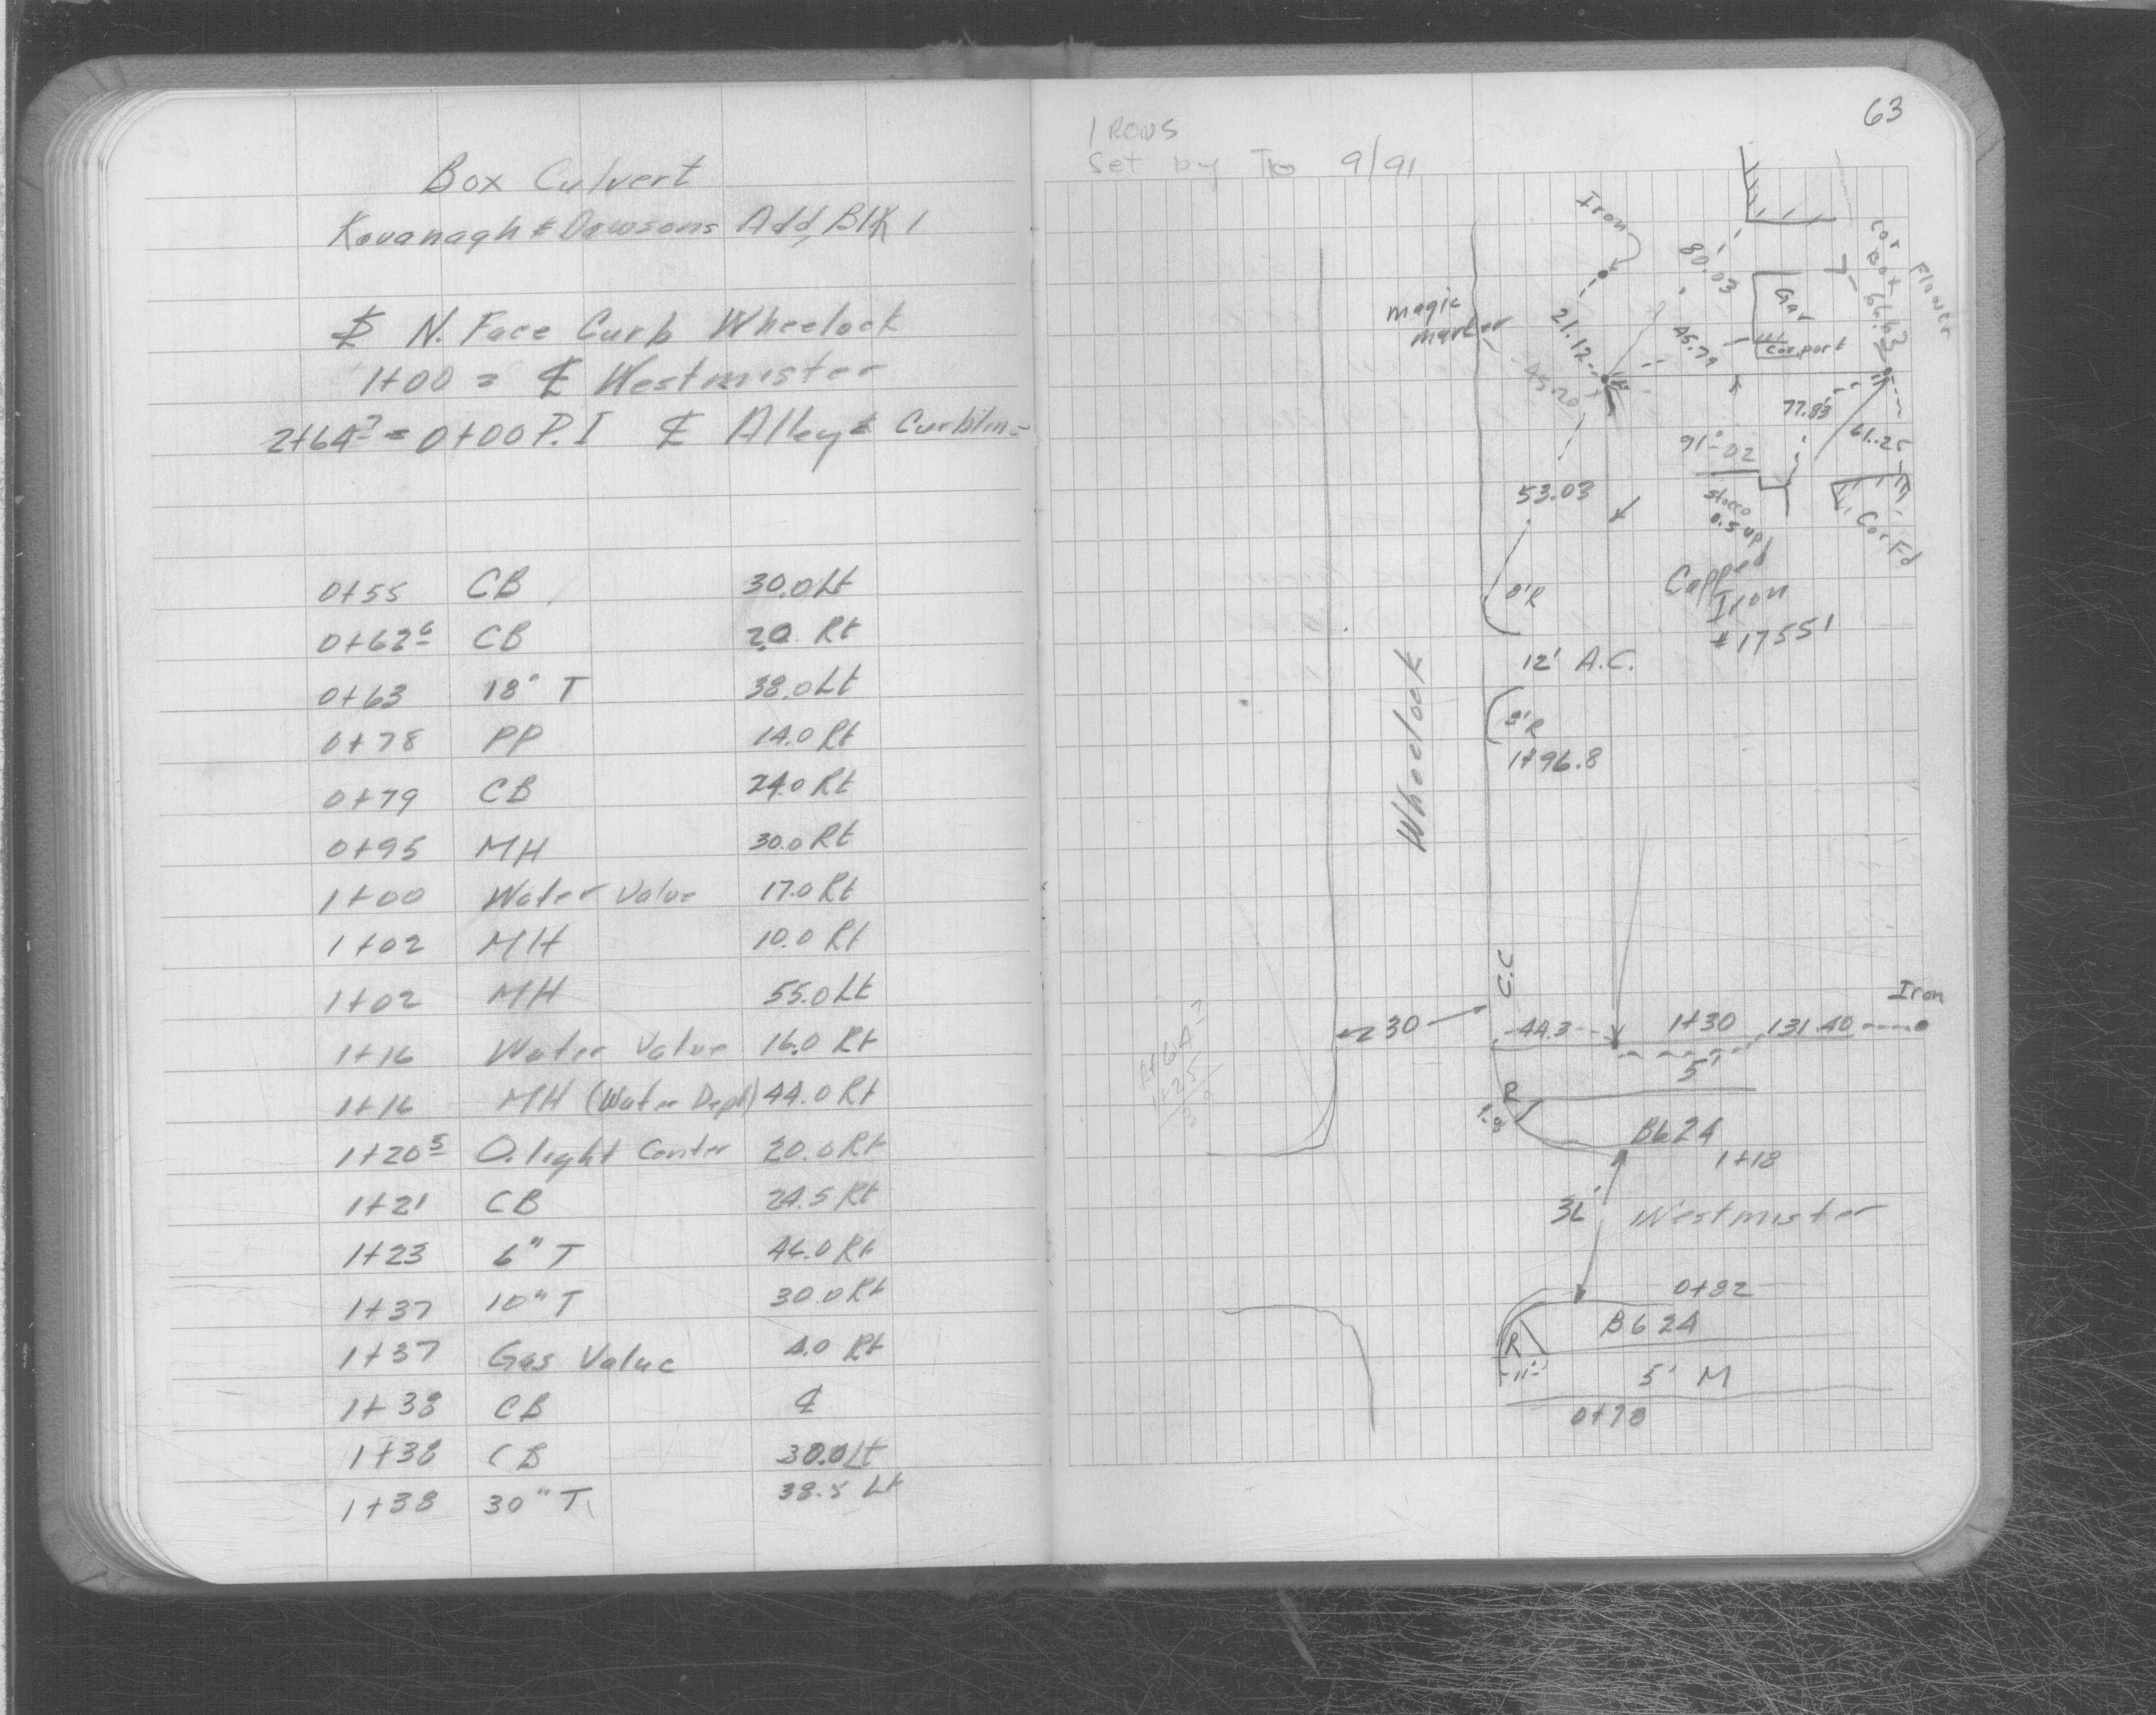 Box Culvert
Kavanagh & Dawsons Add, Blk 1
℄ N. Face Curb Wheelock
1+00 = ℄ Westmister
2+64⁷ = 0+00 P.I ℄ Alley & Curbline
0+55 CB 30.0 Lt
0+62⁶ CB 20 Rt
0+63 18" T 38.0 Lt
0+78 PP 14.0 Rt
0+79 CB 24.0 Rt
0+95 MH 30.0 Rt
1+00 Water Valve 17.0 Rt
1+02 MH 10.0 Rt
1+02 MH 55.0 Lt
1+16 Water Valve 16.0 Rt
1+16 MH (Water Dept) 44.0 Rt
1+20⁵ O. light Center 20.0 Rt
1+21 CB 24.5 Rt
1+23 6" T 46.0 Rt
1+37 10" T 30.0 Rt
1+37 Gas Valve 4.0 Rt
1+38 CB ℄
1+38 CB 30.0 Lt
1+38 30" T 38.5 Lt
63
IRONS
Set by 9/91
Iron
80.03
Cor
Box
Flower
66.63
magic
marker
21.12
45.20
46.79
Gar
Carport
77.83
61.25
91°-02
53.03
stucco
0.5 up
Cor Fd
Capped
Iron
#17551
12' A.C.
1+96.8
Wheelock
C.C
Iron
30
44.3
1+30
131.40
5'
R
B624
1+18
Westmister
0+82
B624
R
11'
5' M
0+78